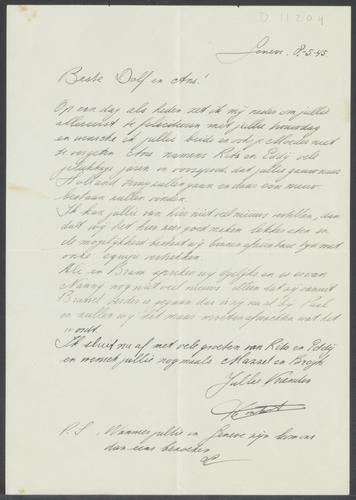 D 11204
Geneve. 8-5-45.
Beste Dolf en Ans!
Op een dag als heden zet ik mij neder om jullie
allereerst te feliciteren met jullie trouwdag
en wensche ik jullie beide en ook je Moeder niet
te vergeten Ans namens Reto en Eddy vele
gelukkige jaren en voorspoed dat jullie gauw naar
Holland terug zullen gaan en daar een nieuw
bestaan zullen vinden.
Ik kan jullie van hier niet veel nieuws vertellen, dan
dat wij het hier zeer goed maken lekker eten en
de mogelijkheid bestaat wij binnen afzienbare tijd met
onze equipe vertrekken.
Ali en Bram spreken wij dagelijks en is er van
Nanny nog niet veel nieuws alleen dat zij vanuit
Brussel verder is gegaan dus is zij nu al bij Paul
en zullen wij het maar moeten afwachten wat het
wordt.
Ik sluit nu af met vele groeten van Reto en Eddy
en wensch jullie nogmaals Mazzel en Broge
Jullie Vrienden
P.S. Wanneer jullie in Geneve zijn kom ons
dan eens bezoeken